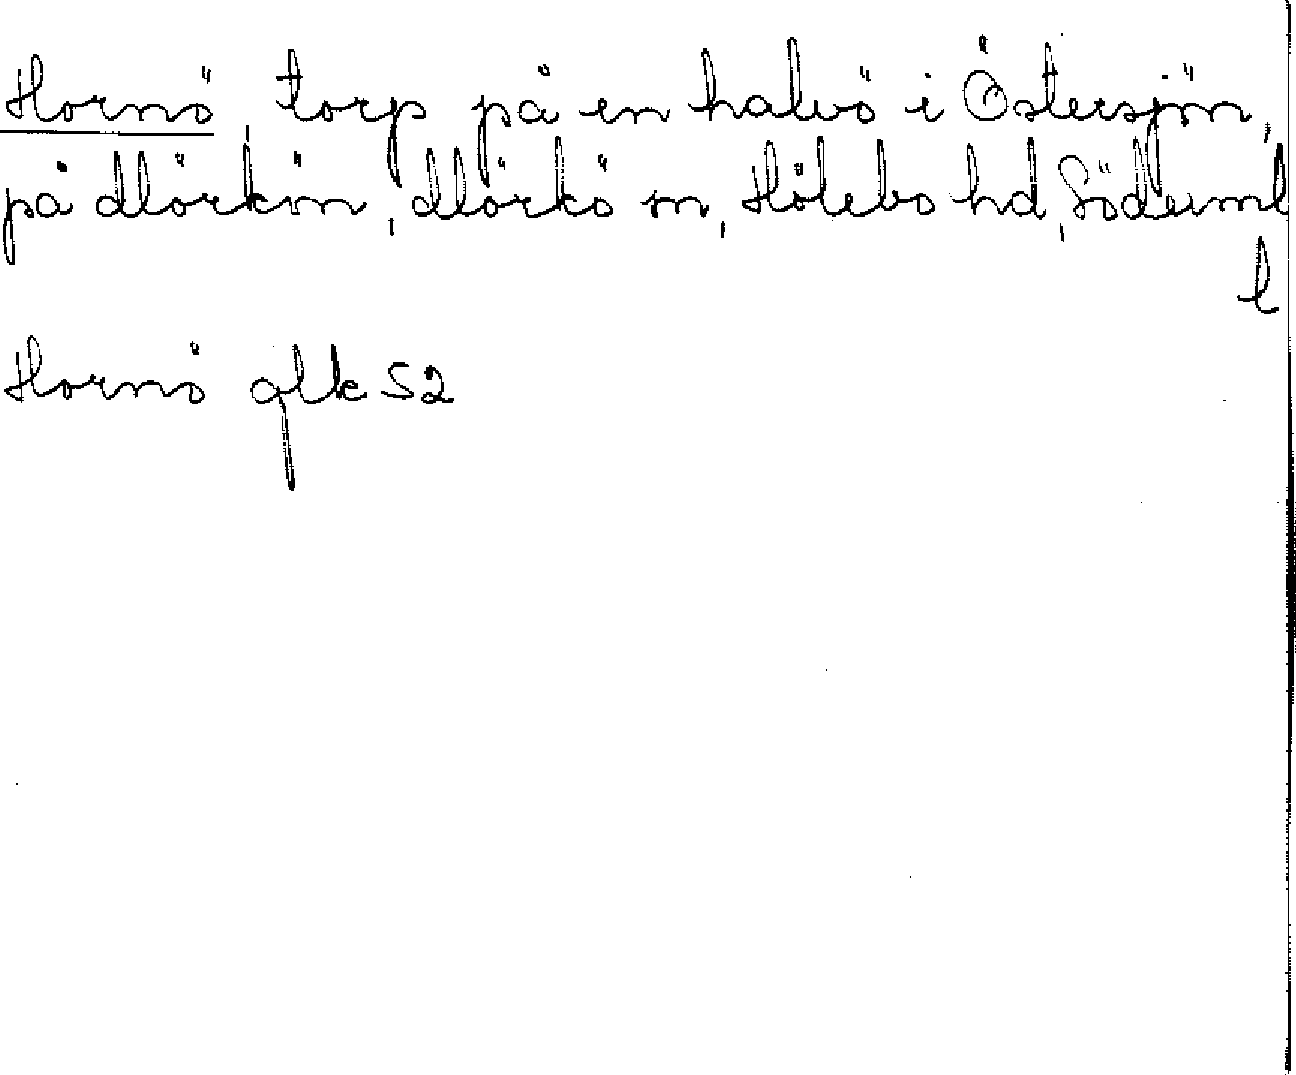 Hornö, torp på en halvö i Östersjön,
på Mörkön, Mörkö sn, Hölebo hd, Söderml
l
Hornö glk S2